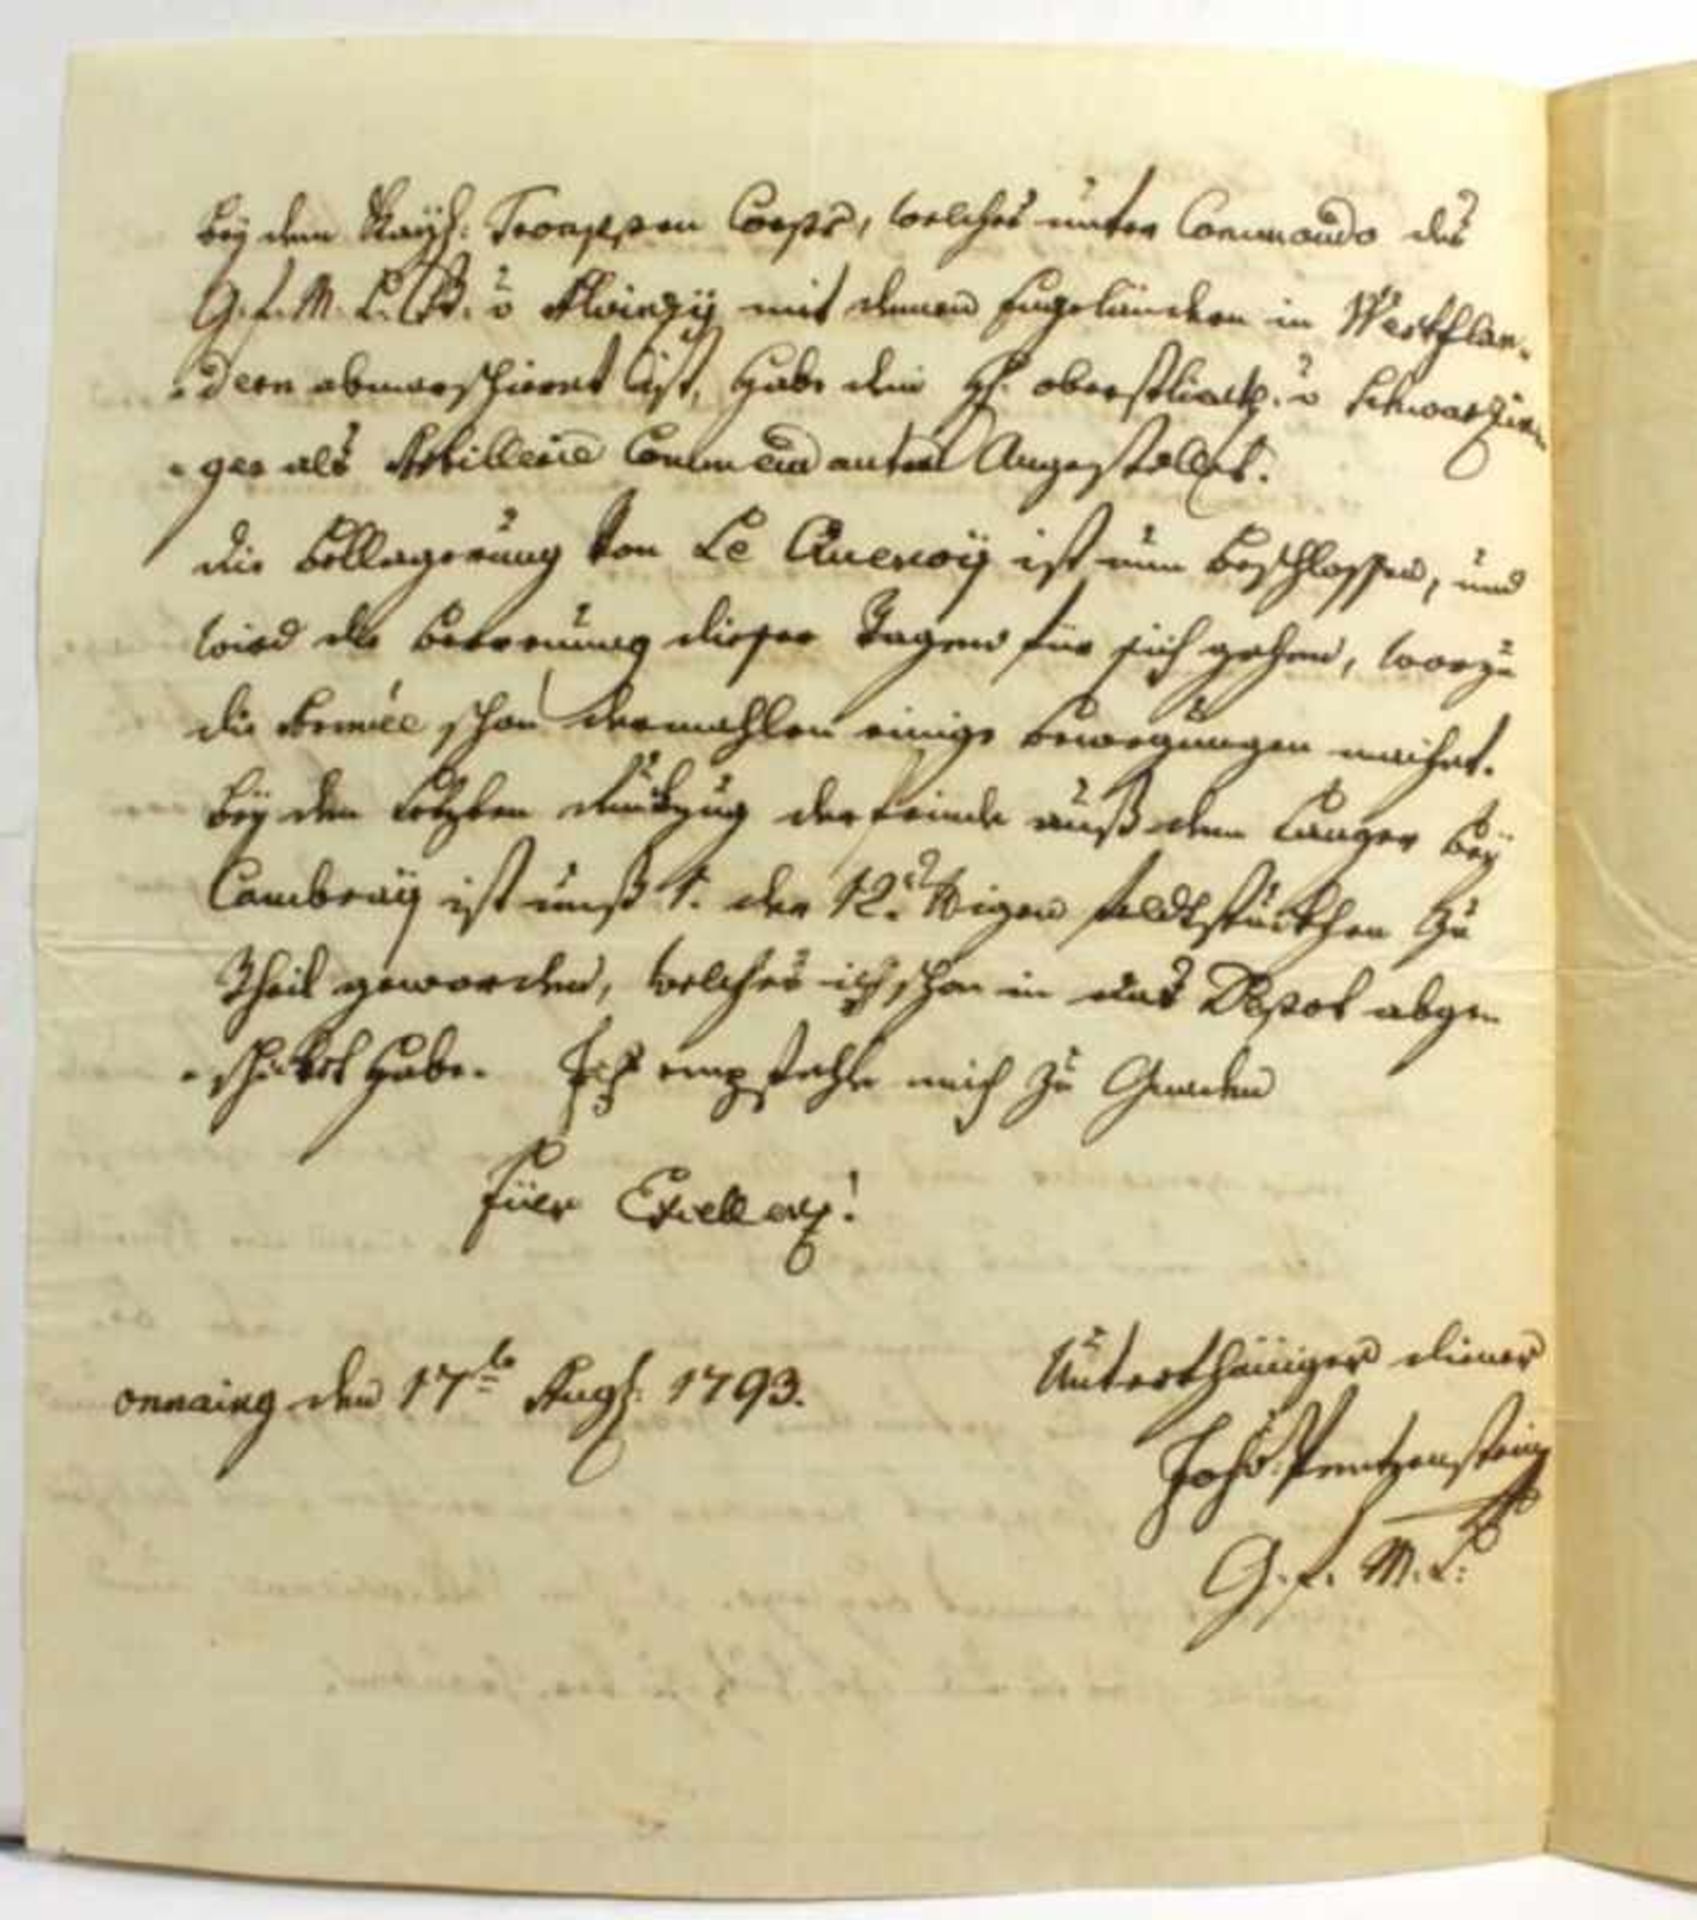 bey dem Kayß: Trouppen Corps, welches unter Commando des
G. F. M. L. B. v Alvinzÿ mit denen Engeländern in Westflan-
-dern abmarschieret ist, habe den H. oberstlieut. v Schwarzin-
-ger als Artillerie Commendanten Angestellet.
die Bellagerung von Le Quenoÿ ist nun beschlossen, und
wird die Berennung dieser Tagen für sich gehen, worzu
die Armée schon dermahlen einige Bewegungen machet.
bey dem letzten Ruckzug der feinde auß dem Lager beÿ
Cambraÿ ist unß 1. der 12. ℔igen feldtstückhen zu
theil geworden, welches ich schon in das Depot abge-
-schicket habe. Ich empfehle mich zu Gnaden
Euer Excellenz!
onnaing den 17te Augs: 1793.
Unterthäniger diener
Joh: Penzenstein
G. F. M. L: